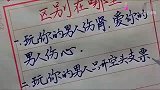 区别在哪里
一、玩你的男人伤肾,爱你的
男人伤心。
二、玩你的男人只开空头支票